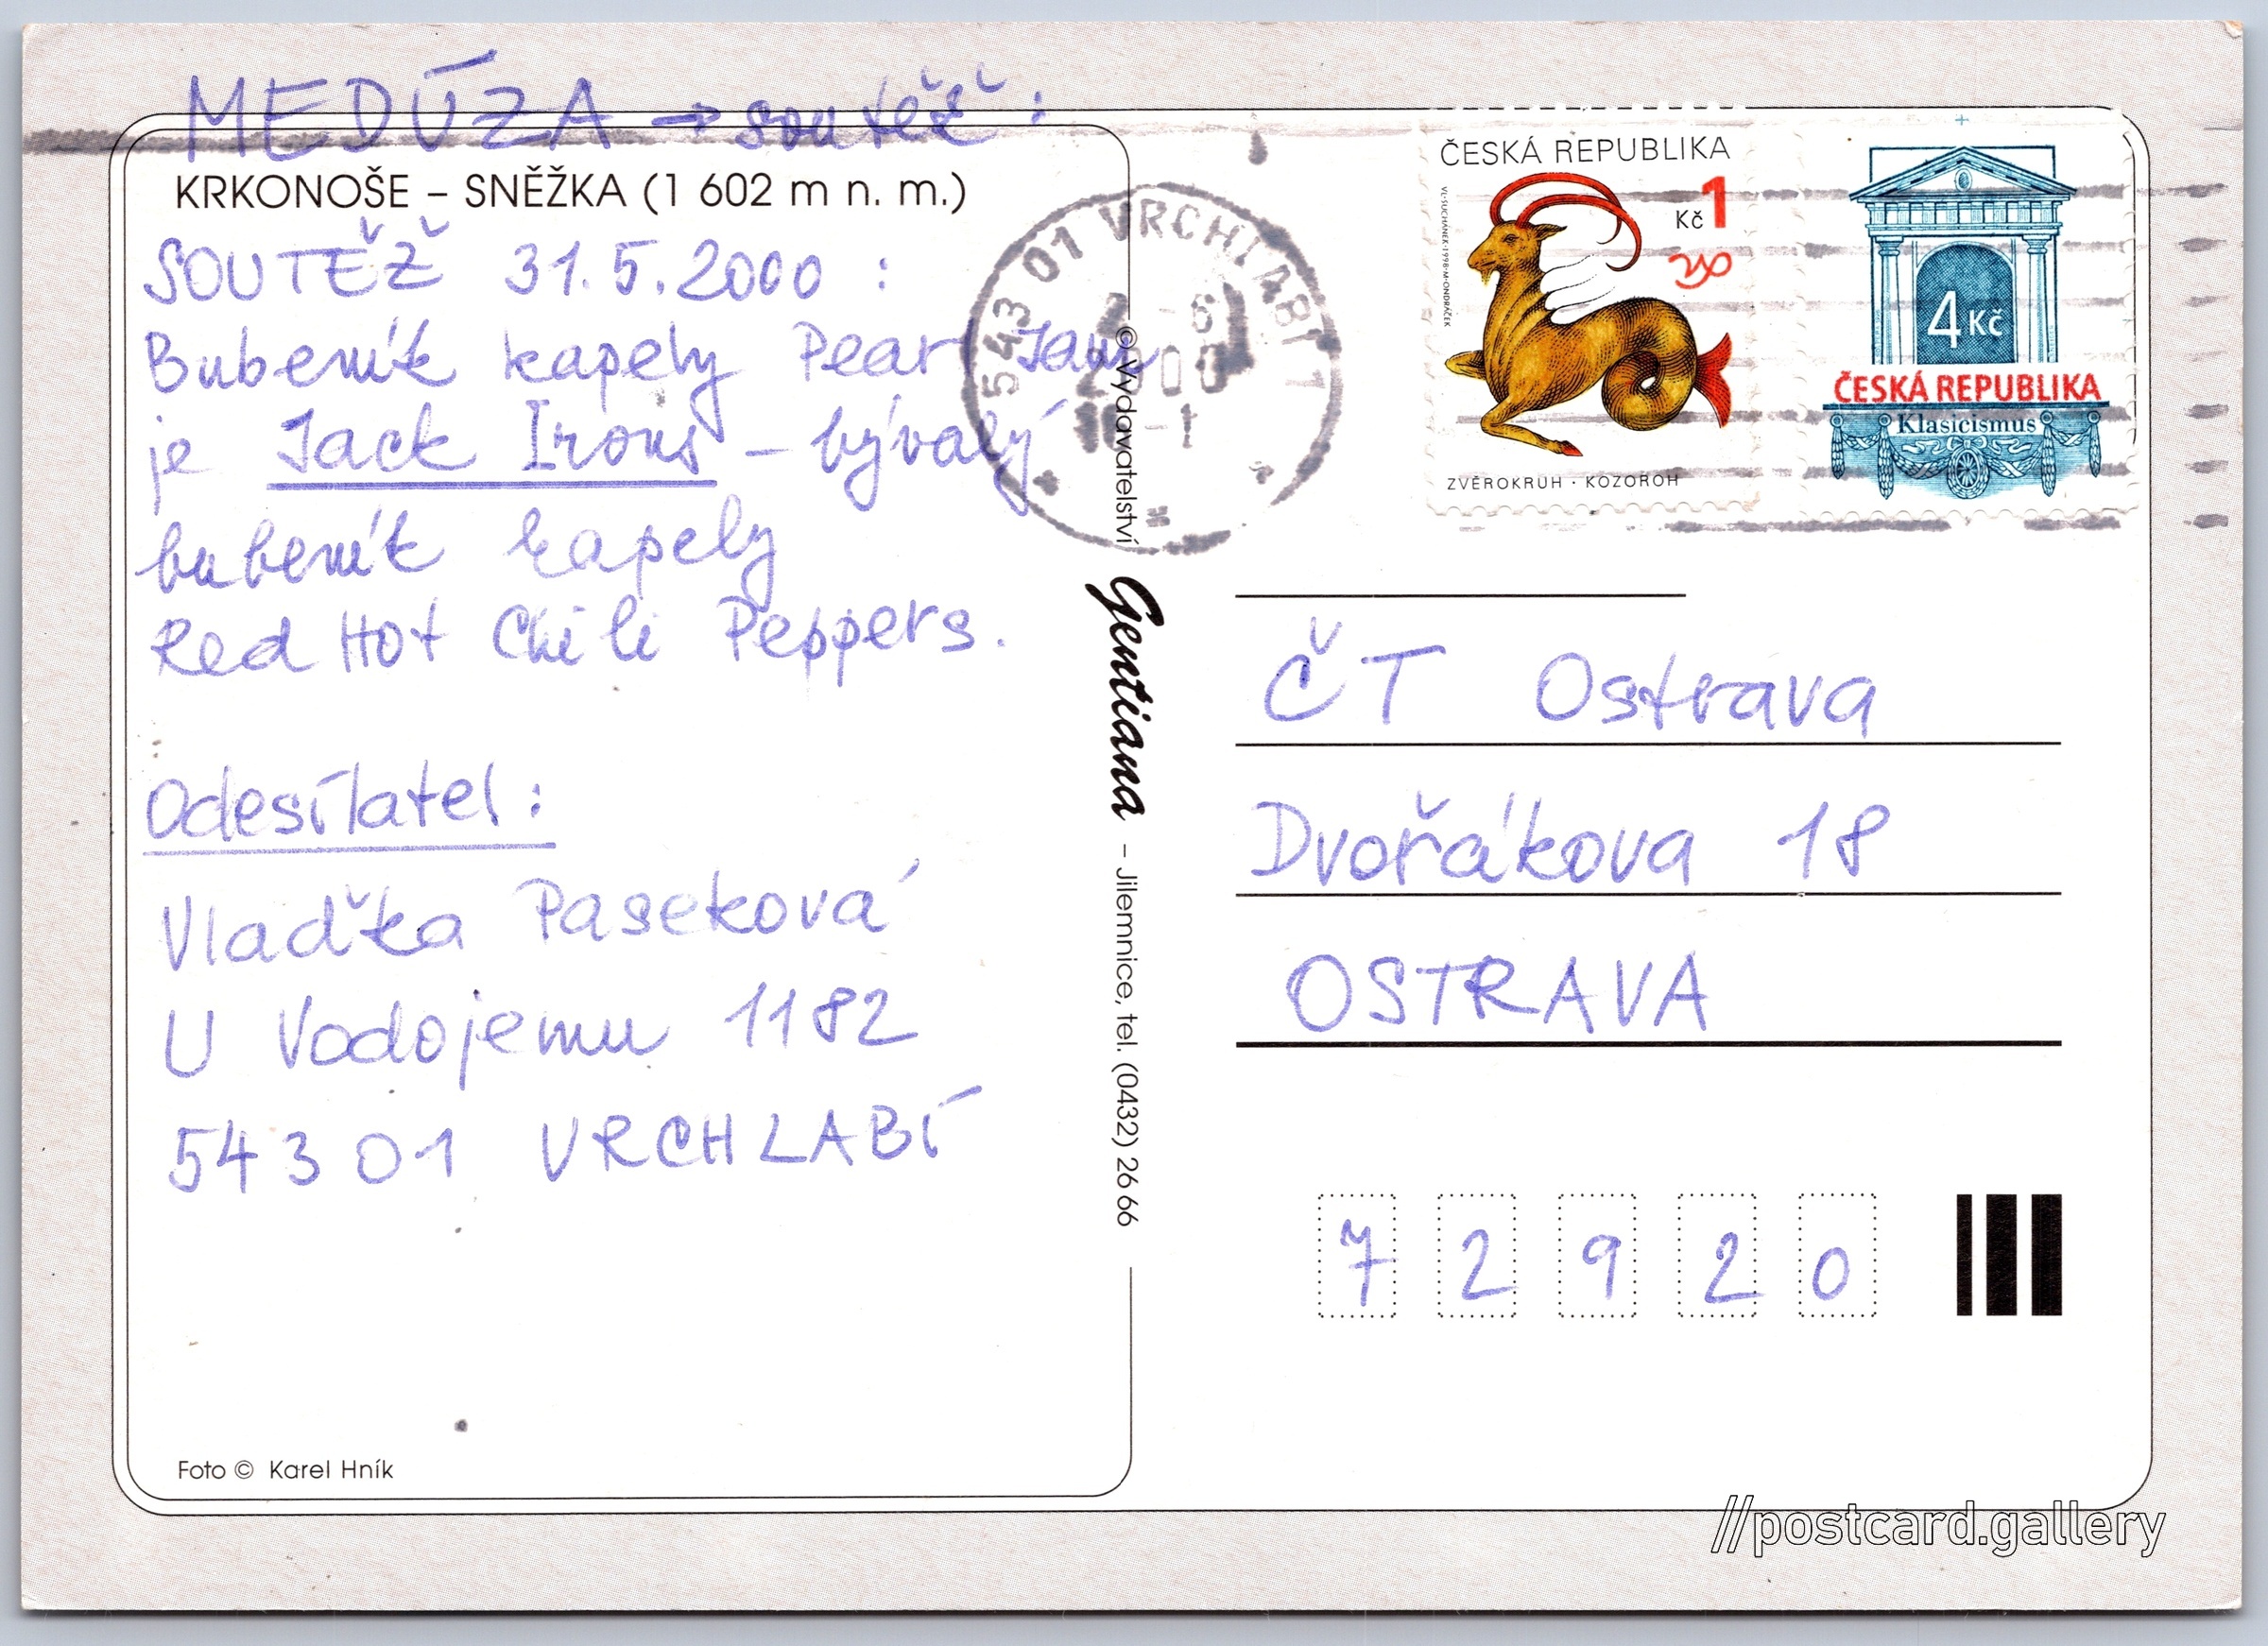 MEDÚZA → soutěž :
KRKONOŠE – SNĚŽKA (1 602 m n. m.)
SOUTĚŽ 31.5.2000 :
Bubeník kapely Pearl Jam
je Jack Irons – bývalý
bubeník kapely
Red Hot Chili Peppers.
Odesílatel :
Vlaďka Paseková
U Vodojemu 1182
543 01 VRCHLABÍ
Foto © Karel Hník
© Vydavatelství Gentiana – Jilemnice, tel. (0432) 26 66
543 01 VRCHLABÍ 1
ČESKÁ REPUBLIKA
Kč 1
VL. SUCHÁNEK · 1998 · M. ONDRÁČEK
ZVĚROKRUH · KOZOROH
4 Kč
ČESKÁ REPUBLIKA
Klasicismus
ČT Ostrava
Dvořákova 18
OSTRAVA
7 2 9 2 0
//postcard.gallery